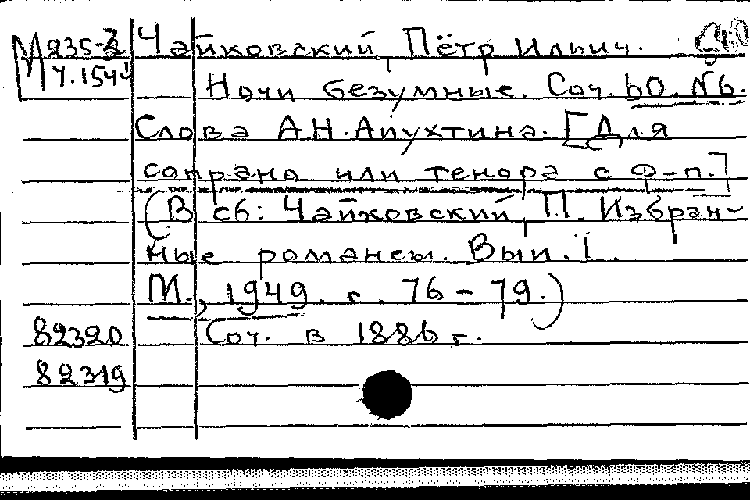 М235-3 Чайковский, Пётр Ильич.
М7.1544 Ночи безумные. Соч. 60. №6.
Слова А.Н. Апухтина. [Для
сопрано или тенора с ф-п.]
(В сб: Чайковский, П. Избран-
ные романсы. Вып. I.
М., 1949. с. 76-79.)
82320 Соч. в 1886 г.
82319